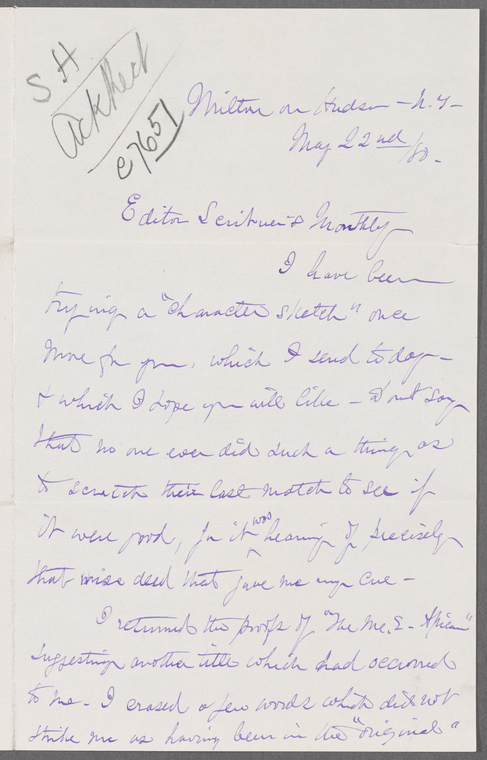 S.H
Ackned
C7651
Milton on Hudson - N.Y-
May 22nd/80.
Editor Scribner's Monthly
I have been
trying a "character sketch" once
more for you, which I send to day -
& which I hope you will like - Don't say
that no one ever did such a thing as
to scratch their last match to see if
it were good, for it was hearing of precisely
that wise deed that gave me my cue -
I returned the proofs of "The M.E. African"
suggesting another title which had occurred
to me - I erased a few words which did not
strike me as having been in the "original"